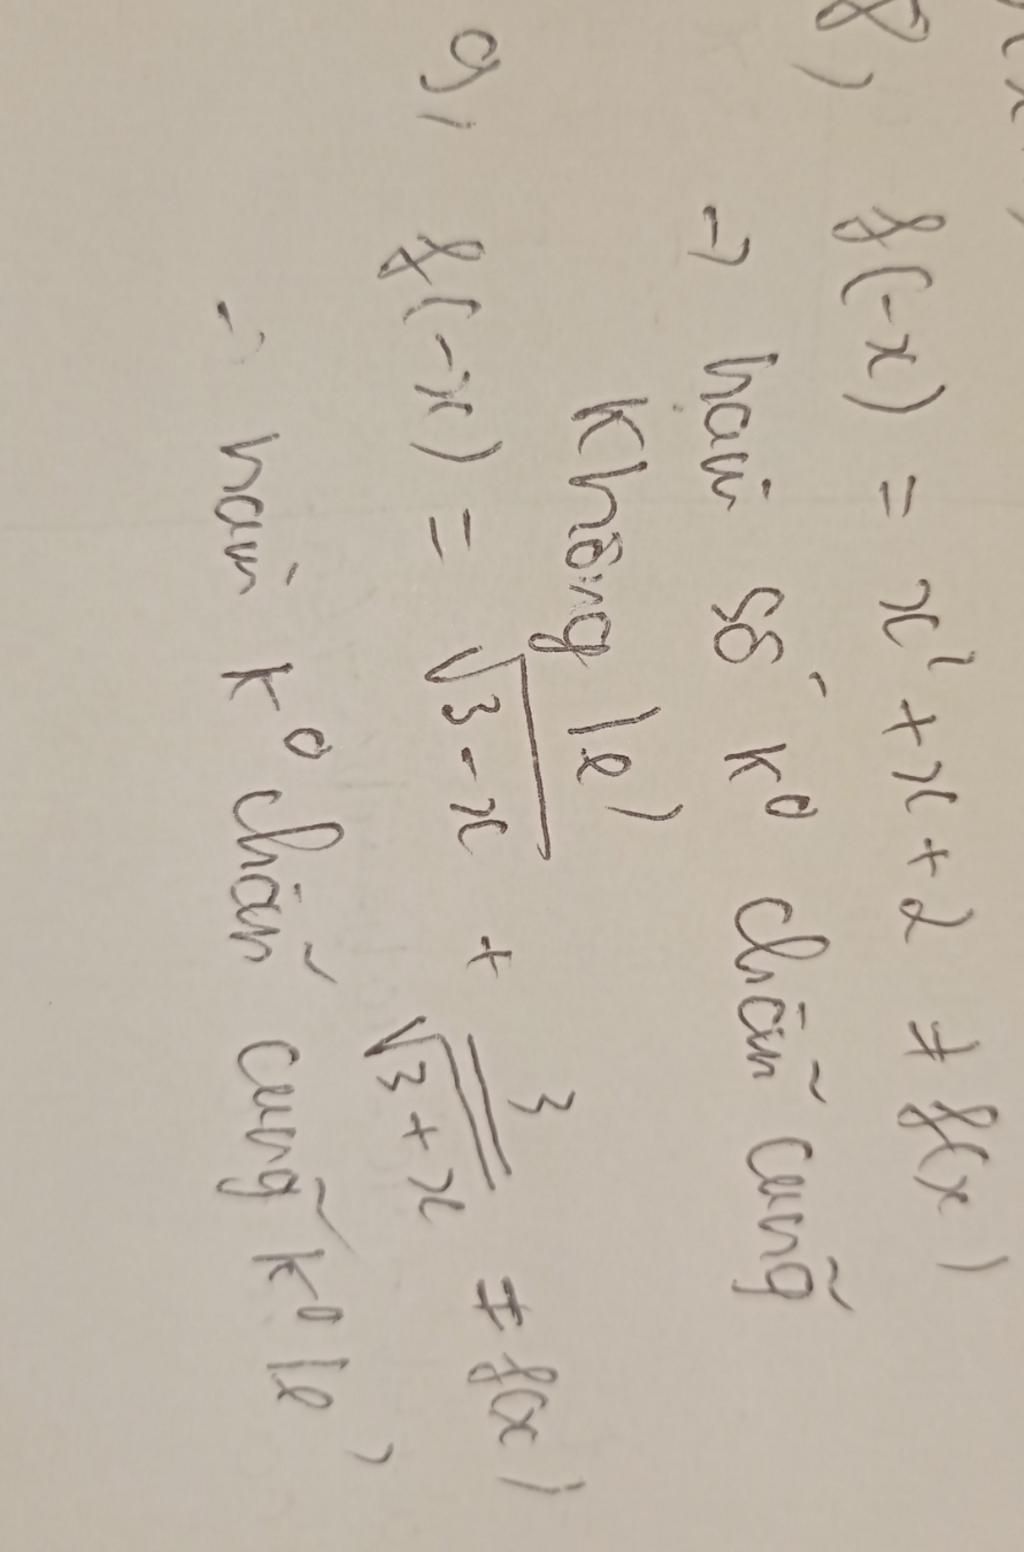 8, f(-x) = x² + x + 2 ≠ f(x)
→ hàm số k° chẵn cũng
không lẻ
9, f(-x) = √(3-x) + √(3+x) ≠ f(x)
→ hàm k° chẵn cũng k° lẻ